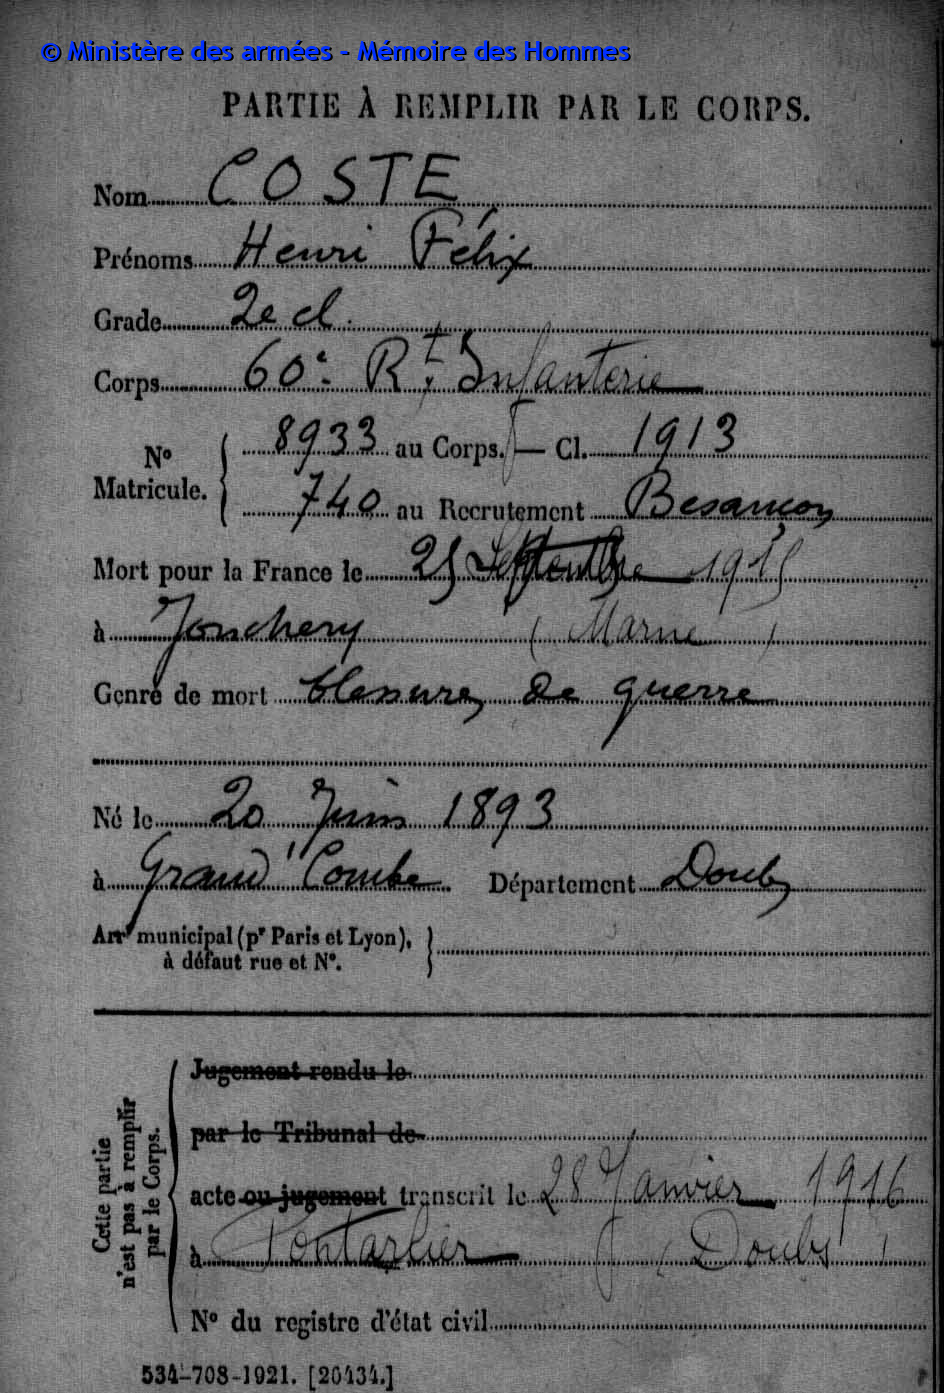 © Ministère des armées - Mémoire des Hommes
PARTIE À REMPLIR PAR LE CORPS.
Nom COSTE
Prénoms Henri Félix
Grade 2e cl.
Corps 60e Rt Infanterie
No Matricule. { 8933 au Corps. — Cl. 1913
740 au Recrutement Besançon
Mort pour la France le 25 Septembre 1915
à Jonchery (Marne)
Genre de mort blessures de guerre
Né le 20 Juin 1893
à Grand'Combe Département Doubs
Arrt municipal (pr Paris et Lyon), à défaut rue et No. }
Cette partie n'est pas à remplir par le Corps.
Jugement rendu le
par le Tribunal de
acte ou jugement transcrit le 28 Janvier 1916
à Pontarlier (Doubs)
No du registre d'état civil
534-708-1921. [20434.]